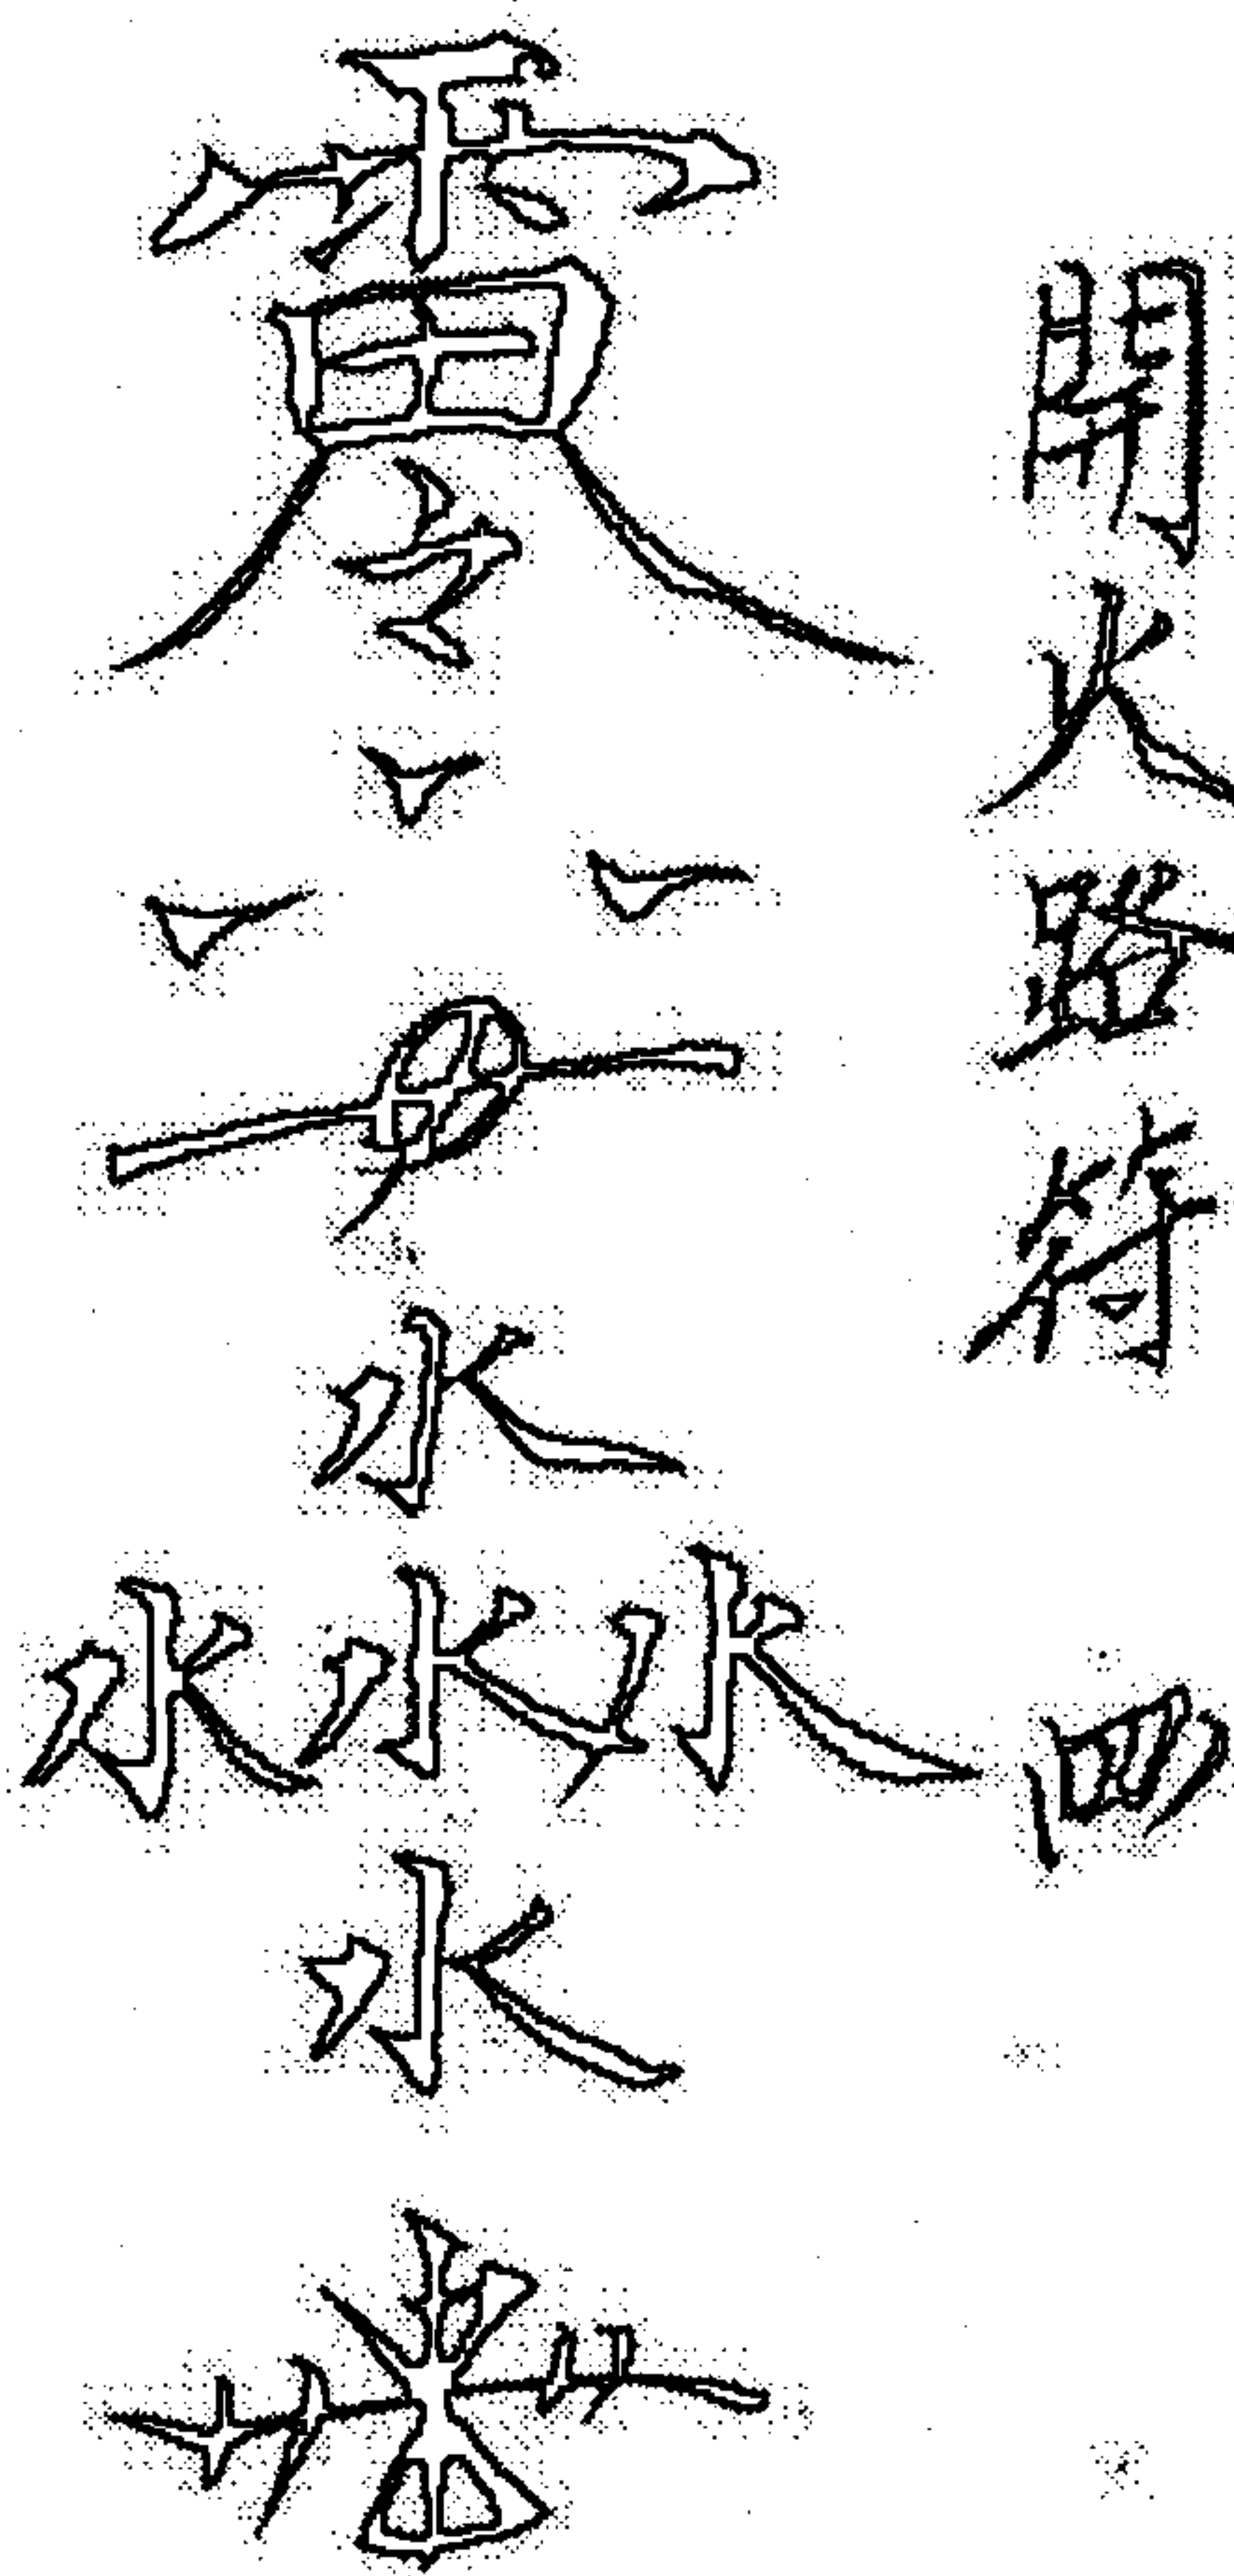 開火路符
四
雷令
水
水水水
水